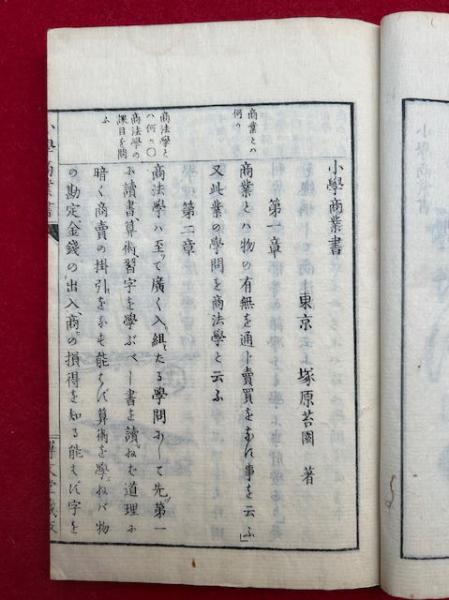 小學商業書
東京 塚原苔園 著
第一章
商業とハ何か
商業とハ物の有無を通し賣買をなす事を云ふ
又此業の學問を商法學と云ふ
第二章
商法學とハ何か〇商法學の課目を問ふ
商法學ハ至て廣く入組たる學問にして先第一
に讀書算術習字を學ぶべし書を讀ねば道理に
暗く商賣の掛引をなす能はず算術を學ねバ物
の勘定金錢の出入商の損得を知る能はず字を
小學商業書